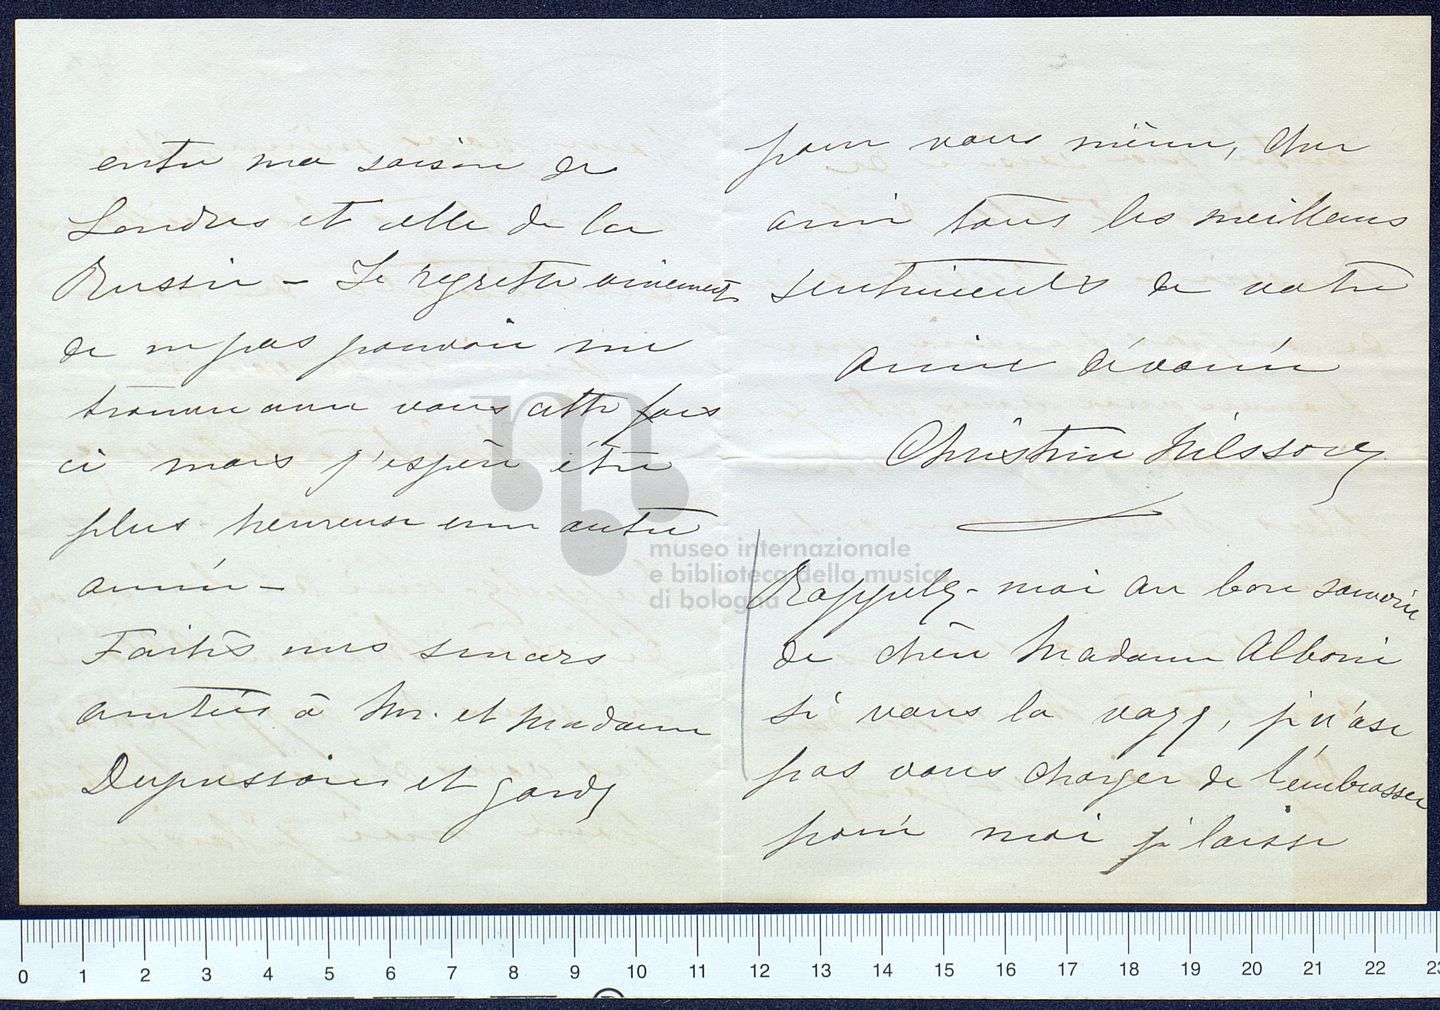 entre ma saison de
Londres et celle de la
Russie – Je regrette vivement
de ne pas pouvoir me
trouver avec vous cette fois
ci mais j'espère être
plus heureuse une autre
année –
Faites mes sincères
amitiés à Mr. et Madame
et gardez
pour vous même, cher
ami tous les meilleurs
sentiments de votre
amie dévouée
Christine Nilsson
Rappelez-moi au bon souvenir
de chère Madame Alboni
si vous la voyez, je n'ose
pas vous charger de l'embrasser
pour moi je laisse
museo internazionale
e biblioteca della musica
di bologna
0 1 2 3 4 5 6 7 8 9 10 11 12 13 14 15 16 17 18 19 20 21 22 23